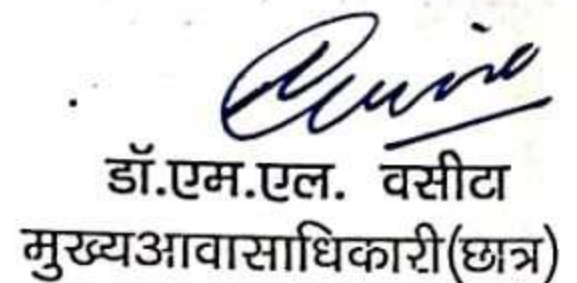 डॉ.एम.एल. वसीटा
मुख्यआवासाधिकारी(छात्र)